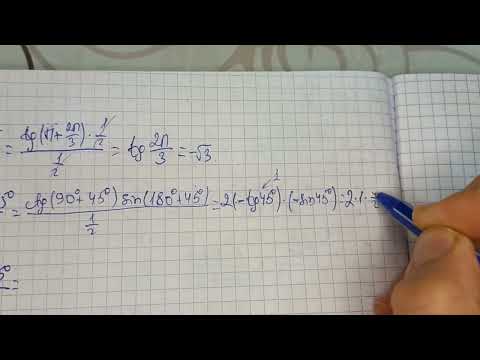 = tg(π + 2π/3) · 1/2 / 1/2 = tg 2π/3 = -√3
1
5° = ctg(90° + 45°) sin(180° + 45°) / 1/2 = 2(-tg45°) · (-sin45°) · 2 · 1 ·
5° =